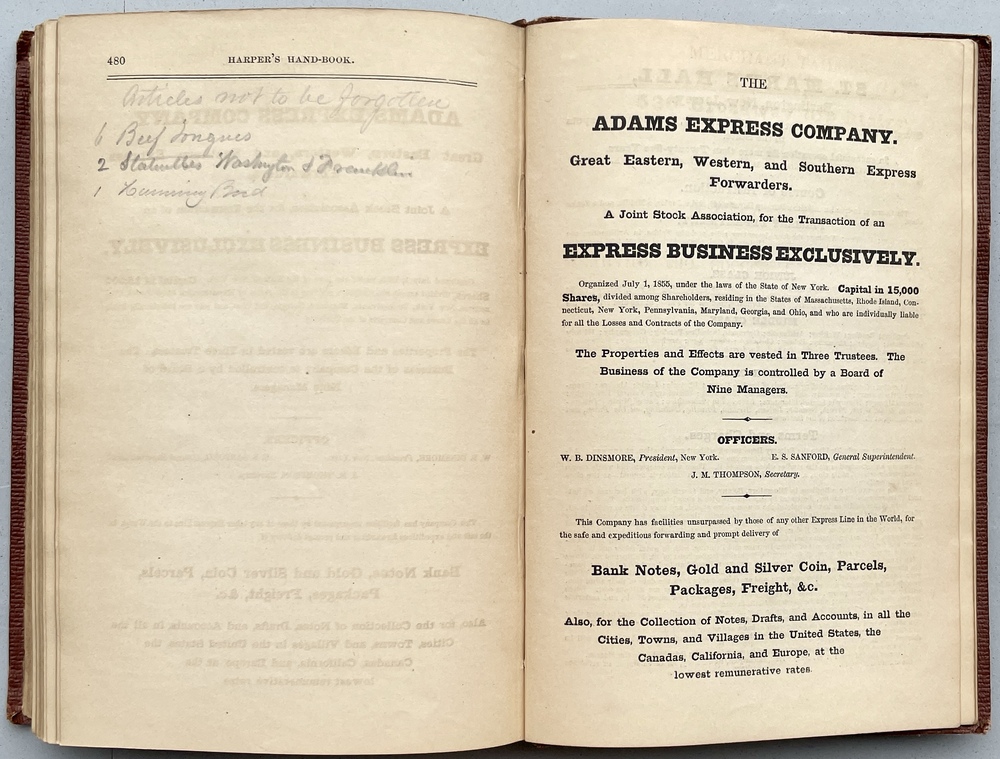 480
HARPER'S HAND-BOOK.
Articles not to be forgotten
6 Beef Tongues
2 Statuettes Washington & Franklin
1 Humming Bird
THE
ADAMS EXPRESS COMPANY.
Great Eastern, Western, and Southern Express
Forwarders.
A Joint Stock Association, for the Transaction of an
EXPRESS BUSINESS EXCLUSIVELY.
Organized July 1, 1855, under the laws of the State of New York. Capital in 15,000
Shares, divided among Shareholders, residing in the States of Massachusetts, Rhode Island, Con-
necticut, New York, Pennsylvania, Maryland, Georgia, and Ohio, and who are individually liable
for all the Losses and Contracts of the Company.
The Properties and Effects are vested in Three Trustees. The
Business of the Company is controlled by a Board of
Nine Managers.
OFFICERS.
W. B. DINSMORE, President, New York. E. S. SANFORD, General Superintendent.
J. M. THOMPSON, Secretary.
This Company has facilities unsurpassed by those of any other Express Line in the World, for
the safe and expeditious forwarding and prompt delivery of
Bank Notes, Gold and Silver Coin, Parcels,
Packages, Freight, &c.
Also, for the Collection of Notes, Drafts, and Accounts, in all the
Cities, Towns, and Villages in the United States, the
Canadas, California, and Europe, at the
lowest remunerative rates.